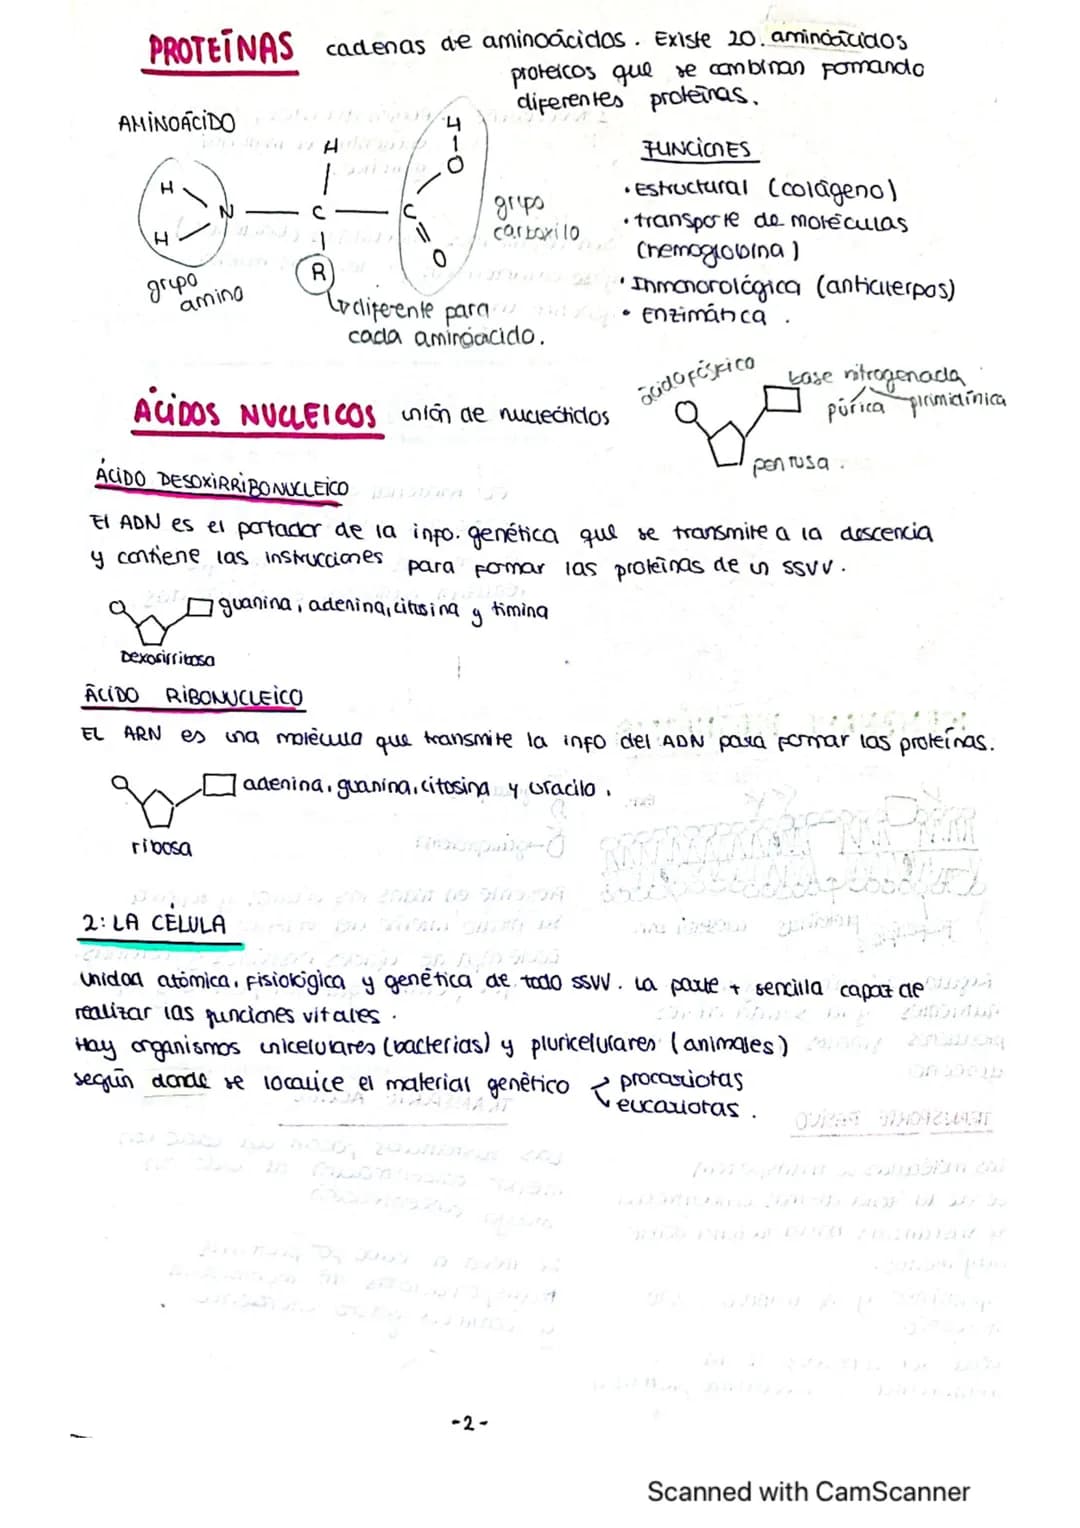 PROTEÍNAS cadenas de aminoácidos. Existe 20. aminoácidos
proteicos que se combinan formando
diferentes proteínas.
AMINOÁCIDO
H
H
N
H
C
R
C
H
O
O
grupo
amino
grupo
carboxilo
diferente para
cada aminoácido.
FUNCIONES
• Estructural (colágeno)
• transporte de moléculas
(hemoglobina)
• Inmonorológica (anticuerpos)
• Enzimática.
ÁCIDOS NUCLEICOS unión de nucleótidos
ácido fósfico
base nitrogenada
púrica pirimidínica
pentosa.
ÁCIDO DESOXIRRIBONUCLEICO
El ADN es el portador de la info. genética que se transmite a la descencia
y contiene las instrucciones para formar las proteínas de un ssvv.
guanina, adenina, citosina y timina
Dexosirribosa
ÁCIDO RIBONUCLEICO
EL ARN es una molécula que transmite la info del ADN para formar las proteínas.
adenina, guanina, citosina y uracilo.
ribosa
2: LA CÉLULA
Unidad atómica, fisiológica y genética de todo ssvv. La parte + sencilla capaz de
realizar las funciones vitales.
Hay organismos unicelulares (bacterias) y pluricelulares (animales)
según donde se localice el material genético → procariotas
eucariotas.
-2-
Scanned with CamScanner